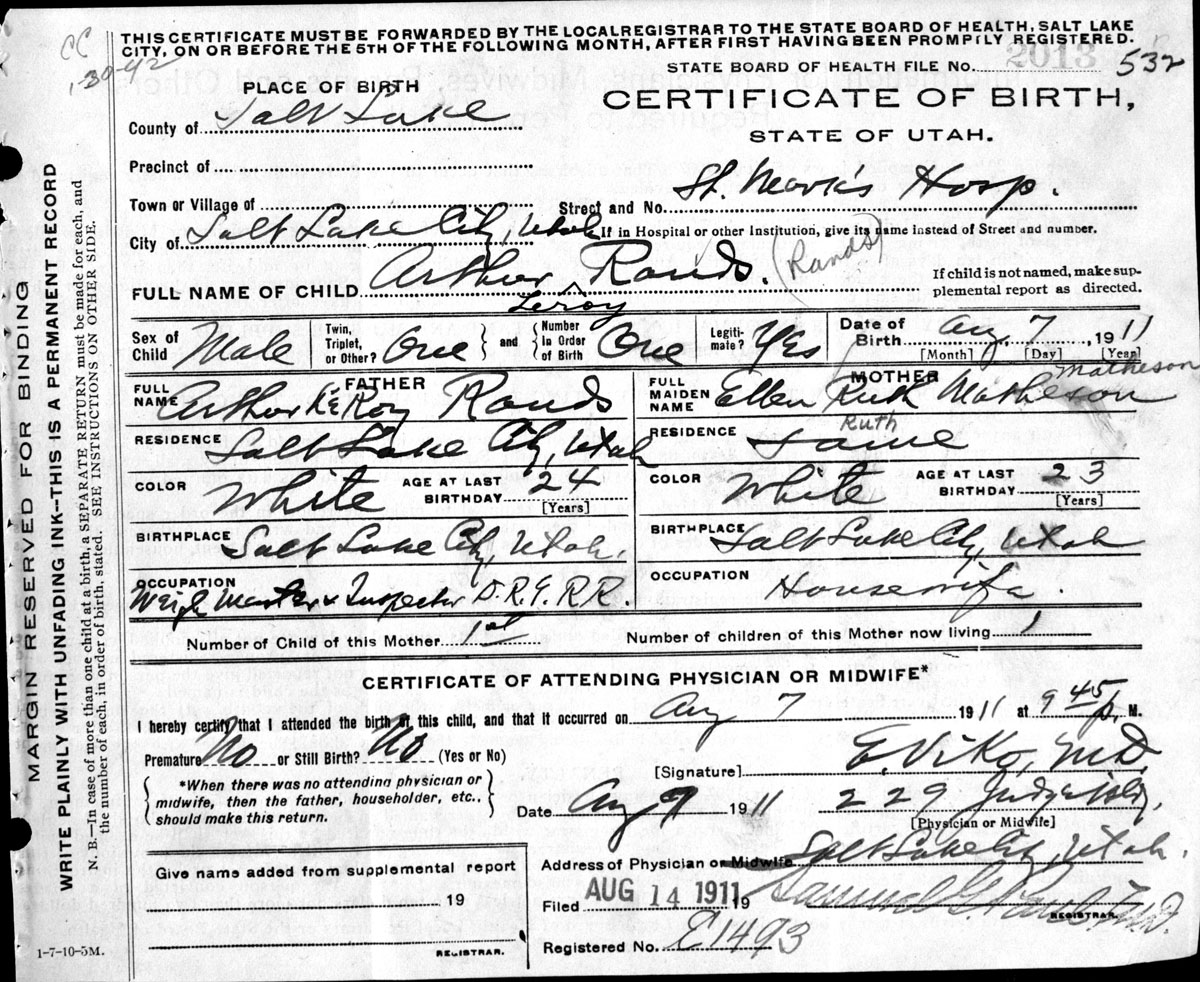 THIS CERTIFICATE MUST BE FORWARDED BY THE LOCAL REGISTRAR TO THE STATE BOARD OF HEALTH, SALT LAKE
CITY, ON OR BEFORE THE 5TH OF THE FOLLOWING MONTH, AFTER FIRST HAVING BEEN PROMPTLY REGISTERED.
CC
1-30-42
STATE BOARD OF HEALTH FILE No. 2013 532
PLACE OF BIRTH
CERTIFICATE OF BIRTH,
STATE OF UTAH.
County of Salt Lake
Precinct of
Town or Village of
Street and No. St. Mark's Hosp.
City of Salt Lake City, Utah
If in Hospital or other Institution, give its name instead of Street and number.
FULL NAME OF CHILD Arthur ^ Rands. (Rands)
Leroy
If child is not named, make sup-
plemental report as directed.
Sex of Child Male
Twin, Triplet, or Other? One and Number in Order of Birth One
Legiti-mate? Yes
Date of Birth Aug. 7, 1911
[Month] [Day] [Year]
FATHER
FULL NAME Arthur LeRoy Rands
RESIDENCE Salt Lake City, Utah
COLOR White AGE AT LAST BIRTHDAY 24
[Years]
BIRTHPLACE Salt Lake City, Utah.
OCCUPATION Weigh Master & Inspector D.R.G. RR.
MOTHER
FULL MAIDEN NAME Ellen Ruth Matheson Matheson
Ruth
RESIDENCE Same
COLOR White AGE AT LAST BIRTHDAY 23
[Years]
BIRTHPLACE Salt Lake City, Utah
OCCUPATION Housewife.
Number of Child of this Mother 1st Number of children of this Mother now living 1
CERTIFICATE OF ATTENDING PHYSICIAN OR MIDWIFE*
I hereby certify that I attended the birth of this child, and that it occurred on Aug 7 1911 at 9 45 p. M.
Premature No or Still Birth? No (Yes or No)
*When there was no attending physician or
midwife, then the father, householder, etc.,
should make this return.
[Signature] E. Viko, M.D.
Date Aug 9 1911 229 Judge Bldg.
[Physician or Midwife]
Address of Physician or Midwife Salt Lake City, Utah.
Give name added from supplemental report
19
REGISTRAR.
Filed AUG 14 1911 19 Samuel G. Paul M.D.
REGISTRAR.
Registered No. E1493
1-7-10-5M.
MARGIN RESERVED FOR BINDING
WRITE PLAINLY WITH UNFADING INK--THIS IS A PERMANENT RECORD
N. B.—In case of more than one child at a birth, a SEPARATE RETURN must be made for each, and
the number of each, in order of birth, stated. SEE INSTRUCTIONS ON OTHER SIDE.